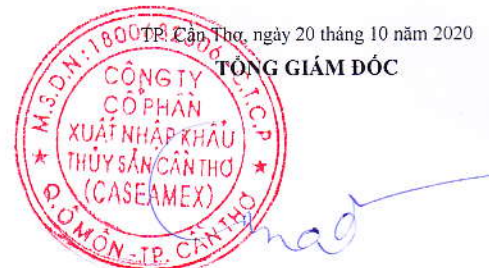 TP. Cần Thơ, ngày 20 tháng 10 năm 2020
TỔNG GIÁM ĐỐC
CÔNG TY
CỔ PHẦN
XUẤT NHẬP KHẨU
THỦY SẢN CẦN THƠ
(CASEAMEX)
Q. Ô MÔN - TP. CẦN THƠ